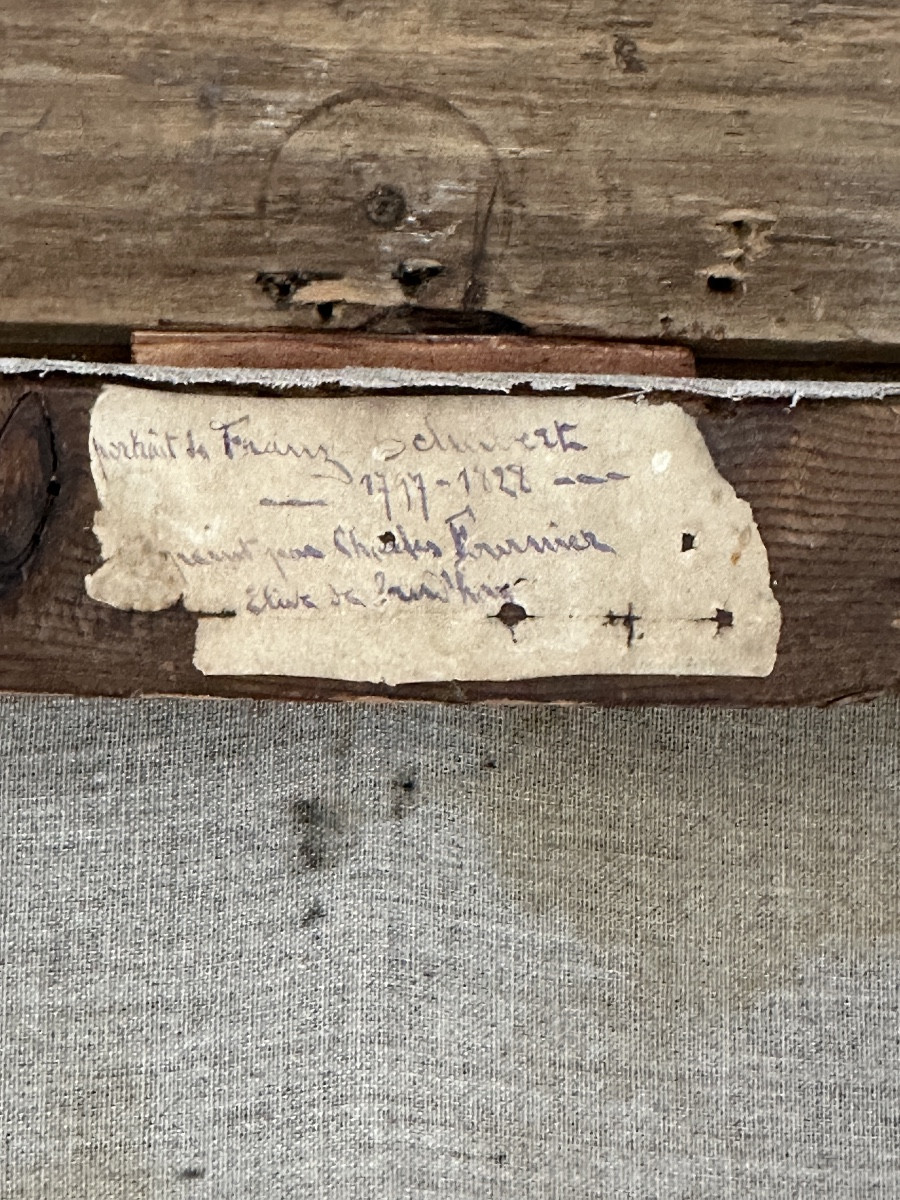 portrait de Franz Schubert
— 1797-1828 ---
peint par Charles Fournier
Elève de Prud'hon